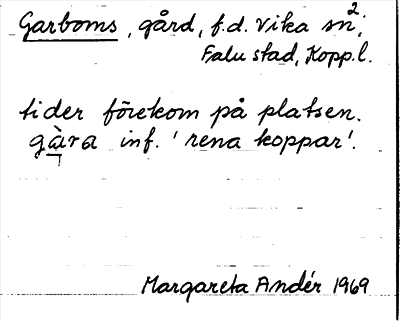 Garboms, gård, f.d. Vika sn 2.
Falu stad, Kopp.l.
tider förekom på platsen.
gàra inf. 'rena koppar'.
Margareta Andér 1969